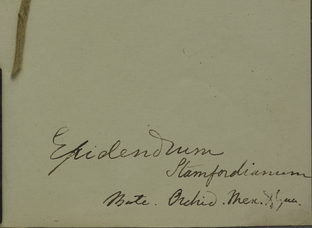 Epidendrum
Stamfordianum
Bate. Orchid. Mex. & Gua.